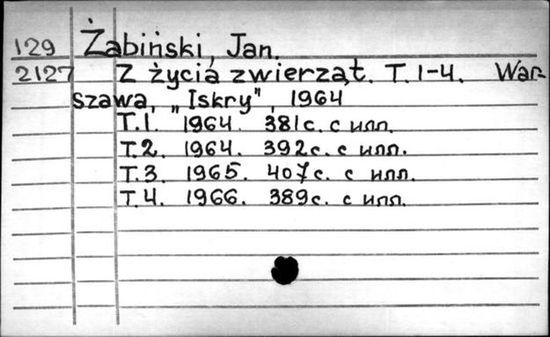 129 Żabiński, Jan.
2127 Z życia zwierząt. T. 1-4. War-
szawa, „Iskry", 1964
T.1. 1964. 381с. с илл.
T.2. 1964. 392с. с илл.
T.3. 1965. 407с. с илл.
T.4. 1966. 389с. с илл.